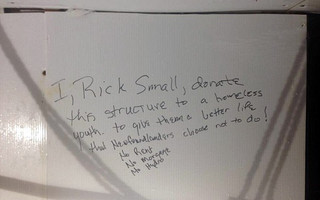 I, Rick Small, donate
this structure to a homeless
youth. to give them a better life
that Newfoundlanders choose not to do!
No Rent
No Mortgage
No Hydro